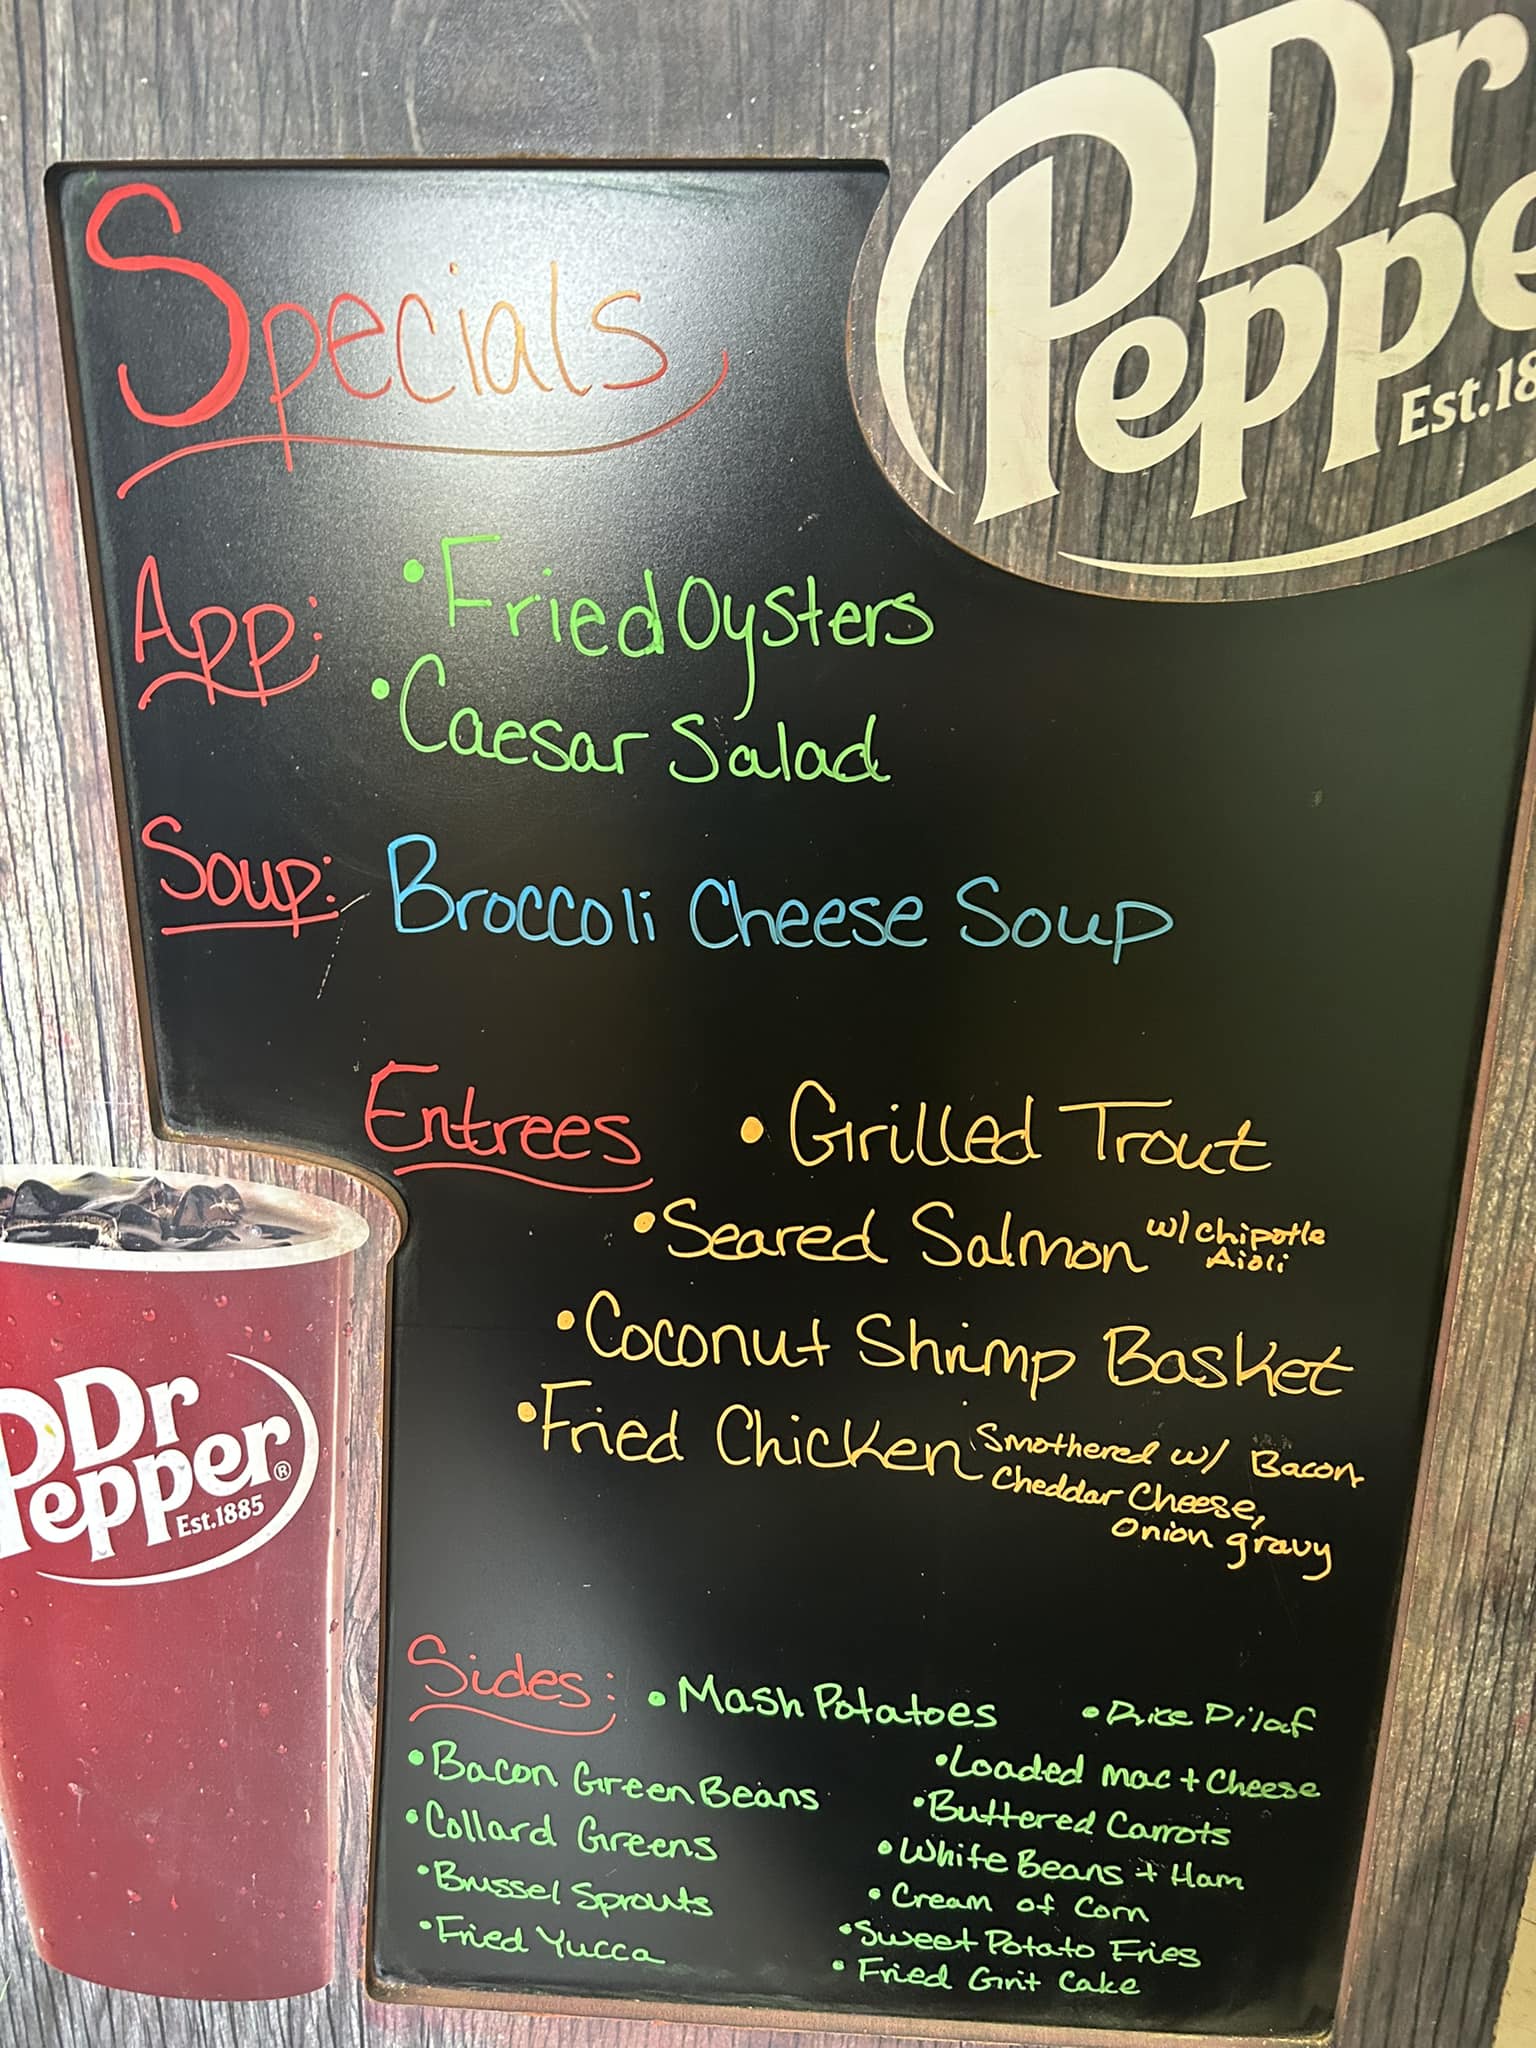 Dr
Pepper
Est.18
Specials
App:
• Fried Oysters
• Caesar Salad
Soup: Broccoli Cheese Soup
Entrees • Grilled Trout
• Seared Salmon w/ Chipotle
Aioli
• Coconut Shrimp Basket
• Fried Chicken Smothered w/ Bacon
Cheddar Cheese,
Onion gravy
Dr
Pepper®
Est.1885
Sides: • Mash Potatoes
• Bacon Green Beans
• Collard Greens
• Brussel Sprouts
• Fried Yucca
• Rice Pilaf
• Loaded Mac + Cheese
• Buttered Carrots
• White Beans + Ham
• Cream of Corn
• Sweet Potato Fries
• Fried Grit Cake